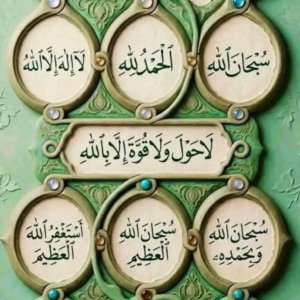 سُبْحَانَ اللّٰهِ
الْحَمْدُ لِلّٰهِ
لَا إِلٰهَ إِلَّا اللّٰهُ
لَا حَوْلَ وَلَا قُوَّةَ إِلَّا بِاللّٰهِ
سُبْحَانَ اللّٰهِ
وَبِحَمْدِهِ
سُبْحَانَ اللّٰهِ
الْعَظِيمِ
أَسْتَغْفِرُ اللّٰهَ
الْعَظِيمَ